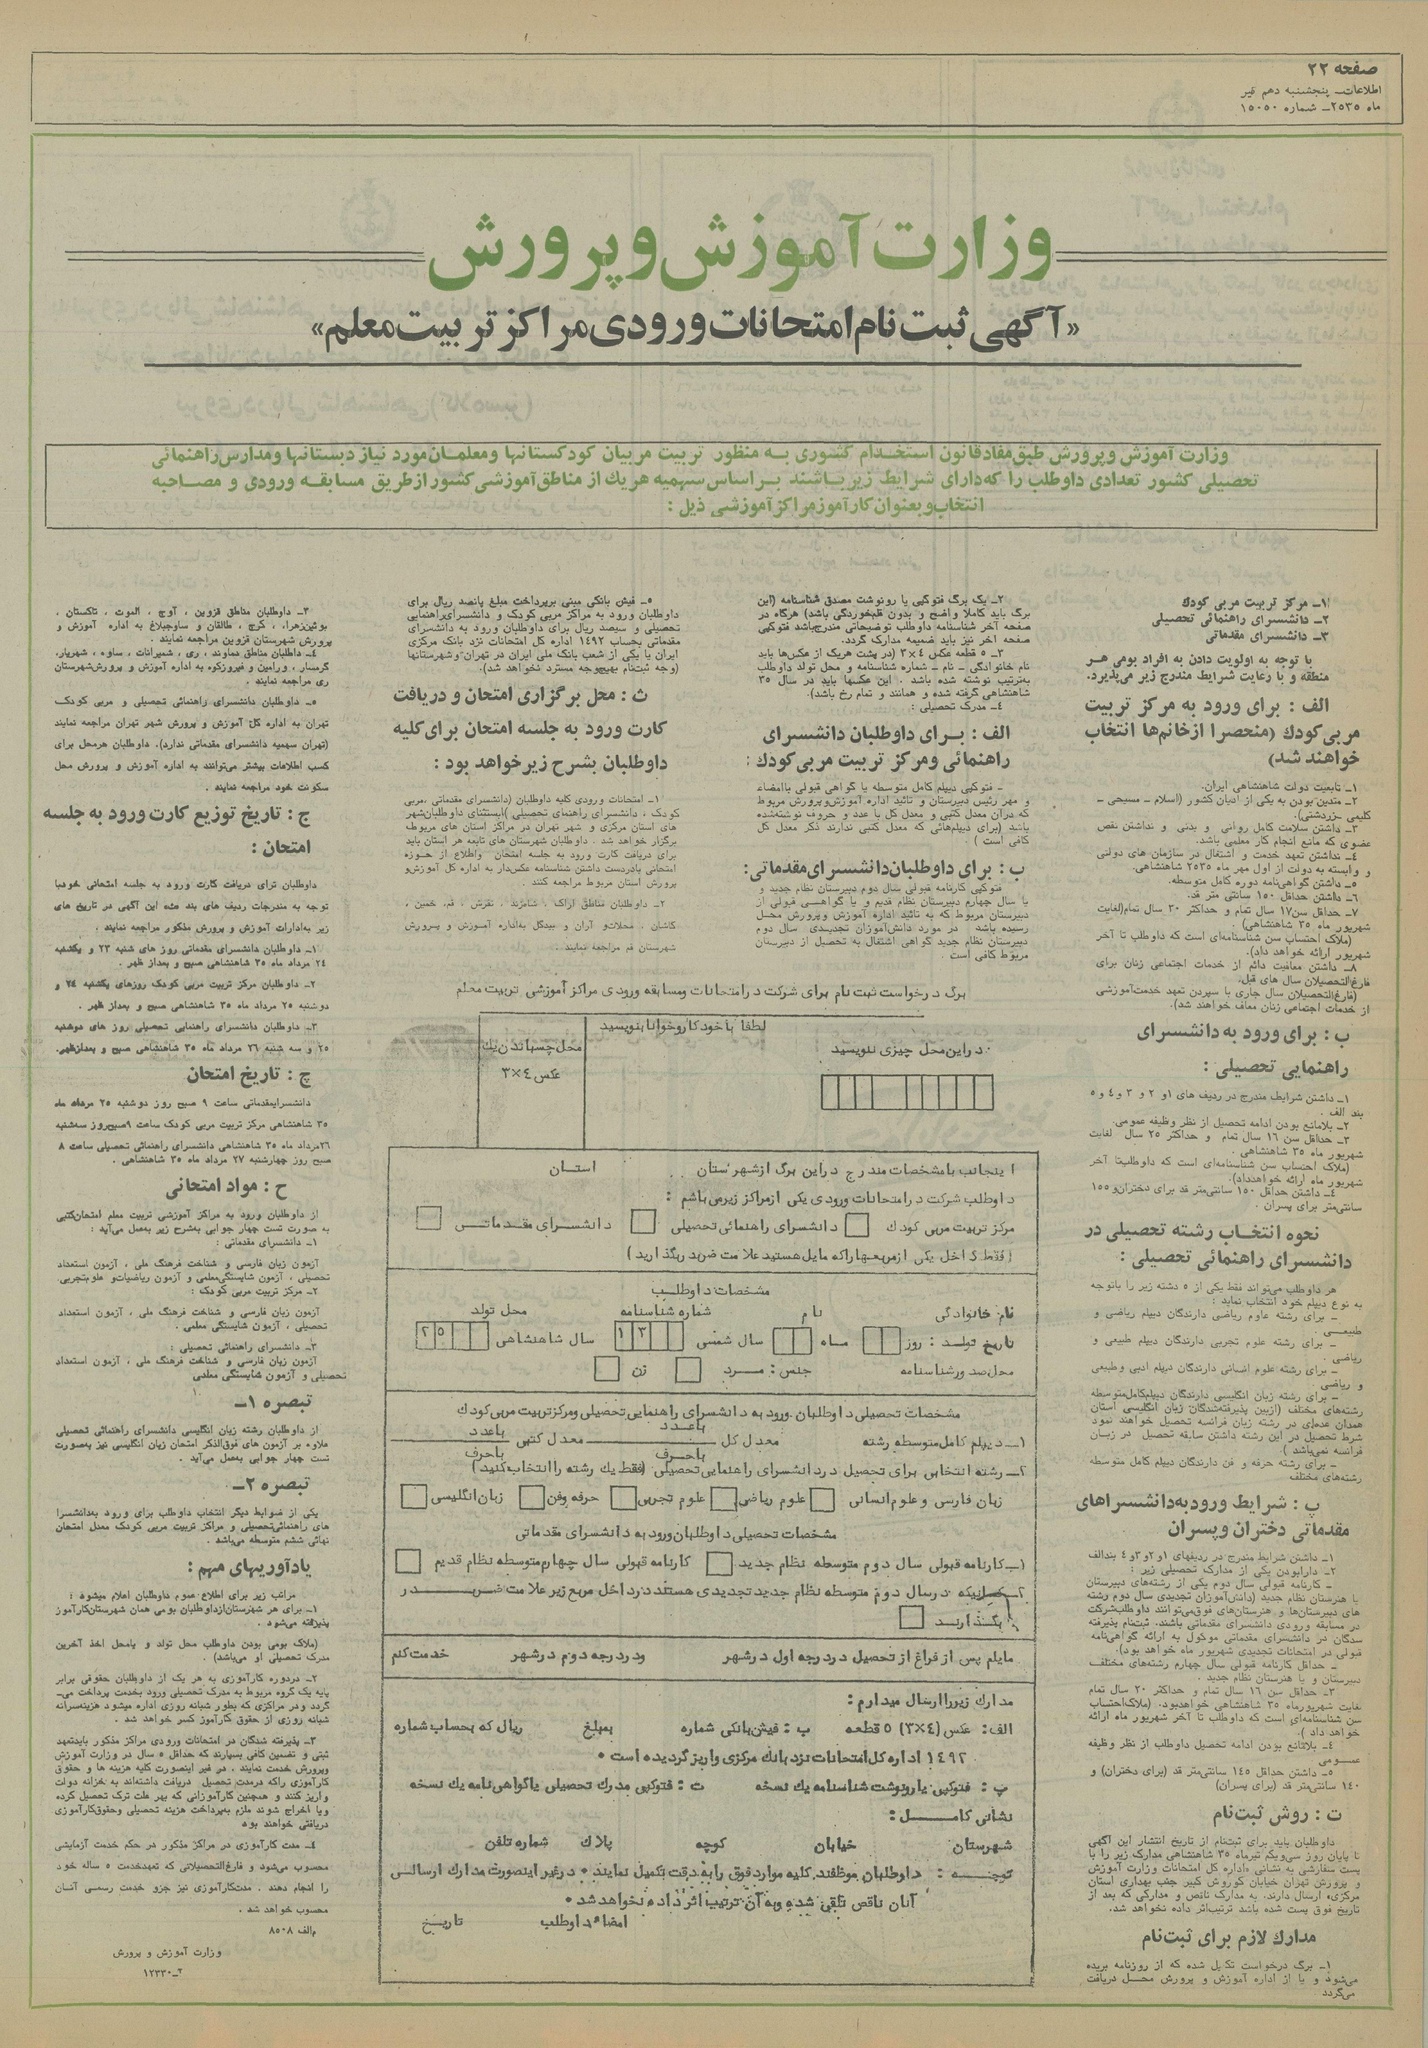 صفحه ۲۲
اطلاعات ـ پنجشنبه دهم تیر
ماه ۲۵۳۵ ـ شماره ۱۵۰۵۰
وزارت آموزش و پرورش
«آگهی ثبت نام امتحانات ورودی مراکز تربیت معلم»
وزارت آموزش و پرورش طبق مفاد قانون استخدام کشوری به منظور تربیت مربیان کودکستانها و معلمان مورد نیاز دبستانها و مدارس راهنمائی
تحصیلی کشور تعدادی داوطلب را که دارای شرایط زیر باشند براساس سهمیه هریک از مناطق آموزشی کشور از طریق مسابقه ورودی و مصاحبه
انتخاب و بعنوان کارآموز مراکز آموزشی ذیل :
۱ـ مرکز تربیت مربی کودك
۲ـ دانشسرای راهنمائی تحصیلی
۳ـ دانشسرای مقدماتی
با توجه به اولویت دادن به افراد بومی هر
منطقه و با رعایت شرایط مندرج زیر می‌پذیرد.
الف : برای ورود به مرکز تربیت
مربی کودك (منحصرا از خانم‌ها انتخاب
خواهند شد)
۱ـ تابعیت دولت شاهنشاهی ایران.
۲ـ متدین بودن به یکی از ادیان کشور (اسلام ـ مسیحی ـ
کلیمی ـ زردشتی).
۳ـ داشتن سلامت کامل روانی و بدنی و نداشتن نقص
عضوی که مانع انجام کار معلمی باشد.
۴ـ نداشتن تعهد خدمت و اشتغال در سازمان های دولتی
و وابسته به دولت از اول مهر ماه ۲۵۳۵ شاهنشاهی.
۵ـ داشتن گواهی‌نامه دوره کامل متوسطه.
۶ـ داشتن حداقل ۱۵۰ سانتی متر قد.
۷ـ حداقل سن ۱۷ سال تمام و حداکثر ۳۰ سال تمام (لغایت
شهریور ماه ۳۵ شاهنشاهی) .
(ملاک احتساب سن شناسنامه‌ای است که داوطلب تا آخر
شهریور ارائه خواهد داد).
۸ـ داشتن معافیت دائم از خدمات اجتماعی زنان برای
فارغ‌التحصیلان سال های قبل.
(فارغ‌التحصیلان سال جاری با سپردن تعهد خدمت آموزشی
از خدمات اجتماعی زنان معاف خواهند شد).
ب : برای ورود به دانشسرای
راهنمایی تحصیلی :
۱ـ داشتن شرایط مندرج در ردیف های ۱ و ۲ و ۳ و ۴ و ۵
بند الف .
۲ـ بلامانع بودن ادامه تحصیل از نظر وظیفه عمومی.
۳ـ حداقل سن ۱۶ سال تمام و حداکثر ۲۵ سال لغایت
شهریور ماه ۳۵ شاهنشاهی .
(ملاک احتساب سن شناسنامه‌ای است که داوطلب تا آخر
شهریور ماه ارائه خواهد داد).
۴ـ داشتن حداقل ۱۵۰ سانتی‌متر قد برای دختران و ۱۵۵
سانتی‌متر برای پسران .
نحوه انتخاب رشته تحصیلی در
دانشسرای راهنمائی تحصیلی :
هر داوطلب می‌تواند فقط یکی از ۵ رشته زیر را باتوجه
به نوع دیپلم خود انتخاب نماید :
ـ برای رشته علوم ریاضی دارندگان دیپلم ریاضی و
طبیعی .
ـ برای رشته علوم تجربی دارندگان دیپلم طبیعی و
ریاضی .
ـ برای رشته علوم انسانی دارندگان دیپلم ادبی و طبیعی
و ریاضی
ـ برای رشته زبان انگلیسی دارندگان دیپلم کامل متوسطه
رشته‌های مختلف (ازبین پذیرفته‌شدگان زبان انگلیسی استان
همدان عده‌ای در رشته زبان فرانسه تحصیل خواهند نمود
شرط تحصیل در این رشته داشتن سابقه تحصیل در زبان
فرانسه نمی‌باشد )
ـ برای رشته حرفه و فن دارندگان دیپلم کامل متوسطه
رشته‌های مختلف
پ : شرایط ورود به دانشسراهای
مقدماتی دختران و پسران
۱ـ داشتن شرایط مندرج در ردیفهای ۱ و ۲ و ۳ و ۴ بندالف
۲ـ دارا بودن یکی از مدارک تحصیلی زیر :
ـ کارنامه قبولی سال دوم یکی از رشته‌های دبیرستان
یا هنرستان نظام جدید (دانش‌آموزان تجدیدی سال دوم رشته
های دبیرستان‌ها و هنرستان‌های فوق می‌توانند داوطلب شرکت
در مسابقه ورودی دانشسرای مقدماتی باشند. ثبت‌نام پذیرفته
شدگان در دانشسرای مقدماتی موکول به ارائه گواهی‌نامه
قبولی در امتحانات تجدیدی شهریور ماه خواهد بود).
ـ حداقل کارنامه قبولی سال چهارم رشته‌های مختلف
دبیرستان و یا هنرستان نظام جدید .
۳ـ حداقل سن ۱۶ سال تمام و حداکثر ۲۰ سال تمام
لغایت شهریورماه ۳۵ شاهنشاهی خواهدبود. (ملاک احتساب
سن شناسنامه‌ای است که داوطلب تا آخر شهریور ماه ارائه
خواهد داد ).
۴ـ بلامانع بودن ادامه تحصیل داوطلب از نظر وظیفه
عمومی
۵ـ داشتن حداقل ۱۴۵ سانتی‌متر قد (برای دختران) و
۱۴۰ سانتی‌متر قد (برای پسران)
ت : روش ثبت‌نام
داوطلبان باید برای ثبت‌نام از تاریخ انتشار این آگهی
تا پایان روز سی‌ویکم تیرماه ۳۵ شاهنشاهی مدارک زیر را با
پست سفارشی به نشانی «اداره کل امتحانات وزارت آموزش
و پرورش تهران خیابان کوروش کبیر جنب بهداری استان
مرکزی» ارسال دارند. به مدارک ناقص و مدارکی که بعد از
تاریخ فوق پست شده باشد ترتیب‌اثر داده نخواهد شد.
مدارك لازم برای ثبت‌نام
۱ـ برگ درخواست تکمیل شده که از روزنامه بریده
می‌شود و یا از اداره آموزش و پرورش محل دریافت
می‌گردد
۲ـ یک برگ فتوکپی یا رونوشت مصدق شناسنامه (این
برگ باید کاملا واضح و بدون قلم‌خوردگی باشد) هرگاه در
صفحه آخر شناسنامه داوطلب توضیحاتی مندرج باشد فتوکپی
صفحه آخر نیز باید ضمیمه مدارک گردد.
۳ـ ۵ قطعه عکس ۴×۳ (در پشت هریک از عکس‌ها باید
نام خانوادگی ـ نام ـ شماره شناسنامه و محل تولد داوطلب
به‌ترتیب نوشته شده باشد . این عکسها باید در سال ۳۵
شاهنشاهی گرفته شده و همانند و تمام رخ باشد).
۴ـ مدرک تحصیلی :
الف : برای داوطلبان دانشسرای
راهنمائی و مرکز تربیت مربی کودك :
ـ فتوکپی دیپلم کامل متوسطه یا گواهی قبولی باامضاء
و مهر رئیس دبیرستان و تائید اداره آموزش و پرورش مربوط
که درآن معدل کتبی و معدل کل با عدد و حروف نوشته‌شده
باشد (برای دیپلم‌هائی که معدل کتبی ندارند ذکر معدل کل
کافی است ) .
ب : برای داوطلبان دانشسرای مقدماتی:
فتوکپی کارنامه قبولی سال دوم دبیرستان نظام جدید و
یا سال چهارم دبیرستان نظام قدیم و یا گواهی قبولی از
دبیرستان مربوط که به تائید اداره آموزش و پرورش محل
رسیده باشد . در مورد دانش‌آموزان تجدیدی سال دوم
دبیرستان نظام جدید گواهی اشتغال به تحصیل از دبیرستان
مربوط کافی است .
۵ـ فیش بانکی مبنی برپرداخت مبلغ پانصد ریال برای
داوطلبان ورود به مراکز مربی کودک و دانشسرای راهنمایی
تحصیلی و سیصد ریال برای داوطلبان ورود به دانشسرای
مقدماتی بحساب ۱۴۹۲ اداره کل امتحانات نزد بانک مرکزی
ایران یا یکی از شعب بانک ملی ایران در تهران و شهرستانها
(وجه ثبت‌نام بهیچوجه مسترد نخواهد شد).
ث : محل برگزاری امتحان و دریافت
کارت ورود به جلسه امتحان برای کلیه
داوطلبان بشرح زیر خواهد بود :
۱ـ امتحانات ورودی کلیه داوطلبان (دانشسرای مقدماتی ، مربی
کودک ، دانشسرای راهنمای تحصیلی )باستثنای داوطلبان شهر
های استان مرکزی و شهر تهران در مراکز استان های مربوط
برگزار خواهد شد . داوطلبان شهرستان های تابعه هر استان باید
برای دریافت کارت ورود به جلسه امتحان واطلاع از حوزه
امتحانی بادردست داشتن شناسنامه عکس‌دار به اداره کل آموزش و
پرورش استان مربوط مراجعه کنند .
۲ـ داوطلبان مناطق اراک ، شازند ، تفرش ، قم، خمین ،
کاشان ، محلات و آران و بیدگل به‌اداره آموزش و پرورش
شهرستان قم مراجعه نمایند .
۳ـ داوطلبان مناطق قزوین ، آوج ، الموت ، تاکستان ،
بوئین‌زهرا، ، کرج ، طالقان و ساوجبلاغ به اداره آموزش و
پرورش شهرستان قزوین مراجعه نمایند .
۴ـ داوطلبان مناطق دماوند ، ری ، شمیرانات ، ساوه ، شهریار،
گرمسار ، ورامین و فیروزکوه به اداره آموزش و پرورش شهرستان
ری مراجعه نمایند .
۵ـ داوطلبان دانشسرای راهنمائی تحصیلی و مربی کودک
تهران به اداره کل آموزش و پرورش شهر تهران مراجعه نمایند
(تهران سهمیه دانشسرای مقدماتی ندارد). داوطلبان هرمحل برای
کسب اطلاعات بیشتر می‌توانند به اداره آموزش و پرورش محل
سکونت خود مراجعه نمایند .
ج : تاریخ توزیع کارت ورود به جلسه
امتحان :
داوطلبان برای دریافت کارت ورود به جلسه امتحانی خود با
توجه به مندرجات ردیف های بند این آگهی در تاریخ های
زیر به‌ادارات آموزش و پرورش مذکور مراجعه نمایند .
۱ـ داوطلبان دانشسرای مقدماتی روز های شنبه ۲۳ و یکشنبه
۲۴ مرداد ماه ۳۵ شاهنشاهی صبح و بعداز ظهر .
۲ـ داوطلبان مرکز تربیت مربی کودک روزهای یکشنبه ۲۴ و
دوشنبه ۲۵ مرداد ماه ۳۵ شاهنشاهی صبح و بعداز ظهر .
۳ـ داوطلبان دانشسرای راهنمایی تحصیلی روز های دوشنبه
۲۵ و سه شنبه ۲۶ مرداد ماه ۳۵ شاهنشاهی صبح و بعدازظهر.
چ : تاریخ امتحان
دانشسرایمقدماتی ساعت ۹ صبح روز دوشنبه ۲۵ مرداد ماه
۳۵ شاهنشاهی مرکز تربیت مربی کودک ساعت ۹صبح روز سه‌شنبه
۲۶مرداد ماه ۳۵ شاهنشاهی دانشسرای راهنمائی تحصیلی ساعت ۸
صبح روز چهارشنبه ۲۷ مرداد ماه ۳۵ شاهنشاهی .
ح : مواد امتحانی
از داوطلبان ورود به مراکز آموزشی تربیت معلم امتحان کتبی
به صورت تست چهار جوابی به‌شرح زیر به‌عمل می‌آید :
۱ـ دانشسرای مقدماتی :
آزمون زبان فارسی و شناخت فرهنگ ملی ، آزمون استعداد
تحصیلی ، آزمون شایستگی معلمی و آزمون ریاضیات و علوم تجربی.
۲ـ مرکز تربیت مربی کودک :
آزمون زبان فارسی و شناخت فرهنگ ملی ، آزمون استعداد
تحصیلی ، آزمون شایستگی معلمی .
۳ـ دانشسرای راهنمائی تحصیلی :
آزمون زبان فارسی و شناخت فرهنگ ملی ، آزمون استعداد
تحصیلی و آزمون شایستگی معلمی
تبصره ۱ـ
از داوطلبان رشته زبان انگلیسی دانشسرای راهنمائی تحصیلی
علاوه بر آزمون های فوق‌الذکر امتحان زبان انگلیسی نیز به‌صورت
تست چهار جوابی به‌عمل می‌آید .
تبصره ۲ـ
یکی از ضوابط دیگر انتخاب داوطلب برای ورود به‌دانشسرا
های راهنمائی تحصیلی و مراکز تربیت مربی کودک معدل امتحان
نهائی ششم متوسطه می‌باشد .
یادآوریهای مهم :
مراتب زیر برای اطلاع عموم داوطلبان اعلام میشود :
۱ـ برای هر شهرستان ازداوطلبان بومی همان شهرستان کارآموز
پذیرفته می‌شود .
(ملاک بومی بودن داوطلب محل تولد و یامحل اخذ آخرین
مدرک تحصیلی او می‌باشد) .
۲ـ دردوره کارآموزی به هر یک از داوطلبان حقوقی برابر
پایه یک گروه مربوط به مدرک تحصیلی ورود بخدمت پرداخت می‌ـ
گردد ودر مراکزی که بطور شبانه روزی اداره میشود هزینه‌سرانه
شبانه روزی از حقوق کارآموز کسر خواهد شد .
۳ـ پذیرفته شدگان در امتحانات ورودی مراکز مذکور بایدتعهد
ثبتی و تضمین کافی بسپارند که حداقل ۵ سال در وزارت آموزش
وپرورش خدمت نمایند ، در غیر اینصورت کلیه هزینه ها و حقوق
کارآموزی راکه درمدت تحصیل دریافت داشته‌اند به خزانه دولت
واریز کنند و همچنین کارآموزانی که بهر علت ترک تحصیل کرده
ویا اخراج شوند ملزم به‌پرداخت هزینه تحصیلی وحقوق کارآموزی
دریافتی خواهند بود
۴ـ مدت کارآموزی در مراکز مذکور در حکم خدمت آزمایشی
محسوب می‌شود و فارغ‌التحصیلانی که تعهدخدمت ۵ ساله خود
را انجام دهند . مدت‌کارآموزی نیز جزو خدمت رسمی آنان
محسوب خواهد شد .
م‌الف ۸۵۰۸
وزارت آموزش و پرورش
۱۲۳۳۰ـ۲
برگ درخواست ثبت نام برای شرکت در امتحانات و مسابقه ورودی مراکز آموزشی تربیت معلم
لطفا با خودکار و خوانا بنویسید
در این محل چیزی ننویسید
محل چسباندن یك
عکس ۴×۳
اینجانب با مشخصات مندرج در این برگ از شهرستان استان
داوطلب شرکت در امتحانات ورودی یکی از مراکز زیر می‌باشم :
مرکز تربیت مربی کودك دانشسرای راهنمائی تحصیلی دانشسرای مقدماتی
(فقط داخل یکی از مربعها را که مایل هستید علامت ضربدر بگذارید)
مشخصات داوطلب
نام خانوادگی نام شماره شناسنامه محل تولد
تاریخ تولد : روز ماه سال شمسی ۱۳ سال شاهنشاهی ۲۵
محل صدور شناسنامه جنس : مرد زن
مشخصات تحصیلی داوطلبان ورود به دانشسرای راهنمایی تحصیلی و مرکز تربیت مربی کودك
۱ـ دیپلم کامل متوسطه رشته معدل کل باعدد باحرف معدل کتبی باعدد باحرف
۲ـ رشته انتخابی برای تحصیل در دانشسرای راهنمایی تحصیلی (فقط یك رشته را انتخاب کنید)
زبان فارسی و علوم انسانی علوم ریاضی علوم تجربی حرفه وفن زبان انگلیسی
مشخصات تحصیلی داوطلبان ورود به دانشسرای مقدماتی
۱ـ کارنامه قبولی سال دوم متوسطه نظام جدید کارنامه قبولی سال چهارم متوسطه نظام قدیم
۲ـ در سال دوم متوسطه نظام جدید تجدیدی هستند در داخل مربع زیر علامت ضربدر
بگذارند
مایلم پس از فراغ از تحصیل در درجه اول در شهر ودر درجه دوم در شهر خدمت کنم
مدارك زیر را ارسال میدارم :
الف : عکس (۴×۳) ۵ قطعه ب : فیش بانکی شماره بمبلغ ریال که بحساب شماره
۱۴۹۲ اداره کل امتحانات نزد بانك مرکزی واریز گردیده است .
پ : فتوکپی یا رونوشت شناسنامه یك نسخه ت : فتوکپی مدرك تحصیلی یا گواهی نامه یك نسخه
نشانی کامل :
شهرستان خیابان کوچه پلاك شماره تلفن
توجه : داوطلبان موظفند کلیه موارد فوق را به دقت تکمیل نمایند . در غیر اینصورت مدارك ارسالی
آنان ناقص تلقی شده و به آن ترتیب اثر داده نخواهد شد .
امضاء داوطلب تاریخ